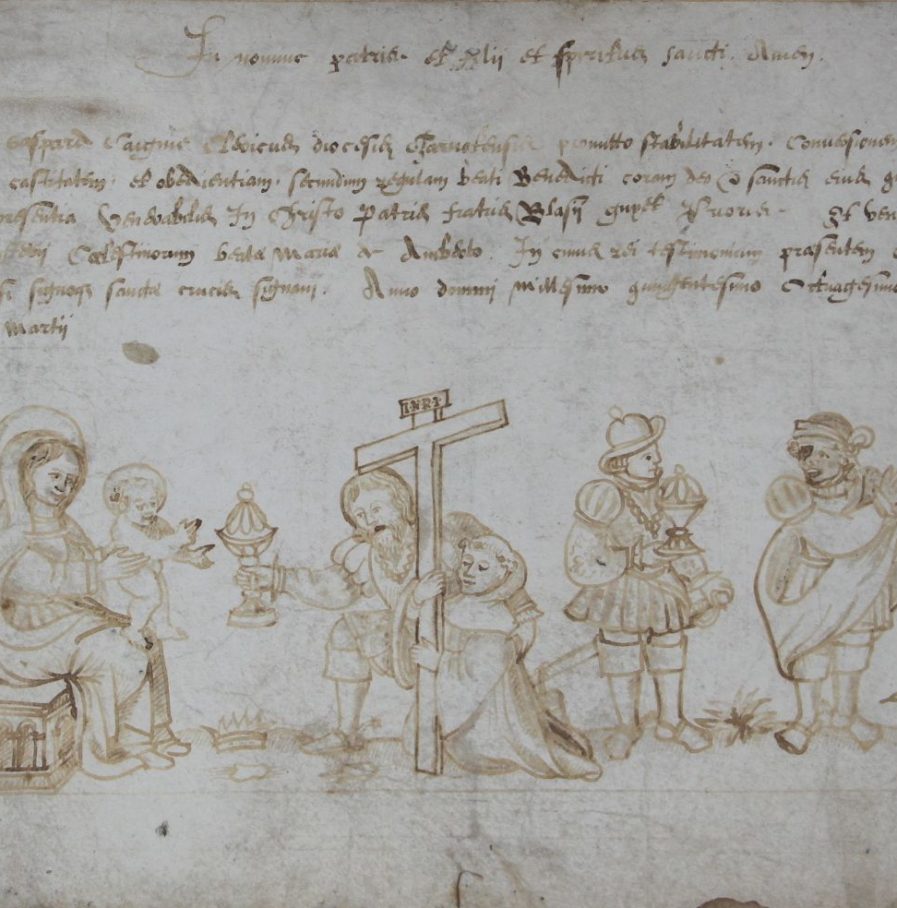 In nomine patris et filii et spiritus sancti. Amen.
Clericus diocesis promitto stabilitatem. Conversionem
castitatem. et obedientiam. secundum regulam beati Benedicti coram deo & sanctis eius
presentia Venerabilis In Christo Patris fratris Blasij Et ven
Celestinorum beate Marie de Amberto. In cuius rei testimonium presentem
signoq3 sancte crucis signavi. Anno domini millesimo quingentesimo Octuagesimo
Martij
INRI